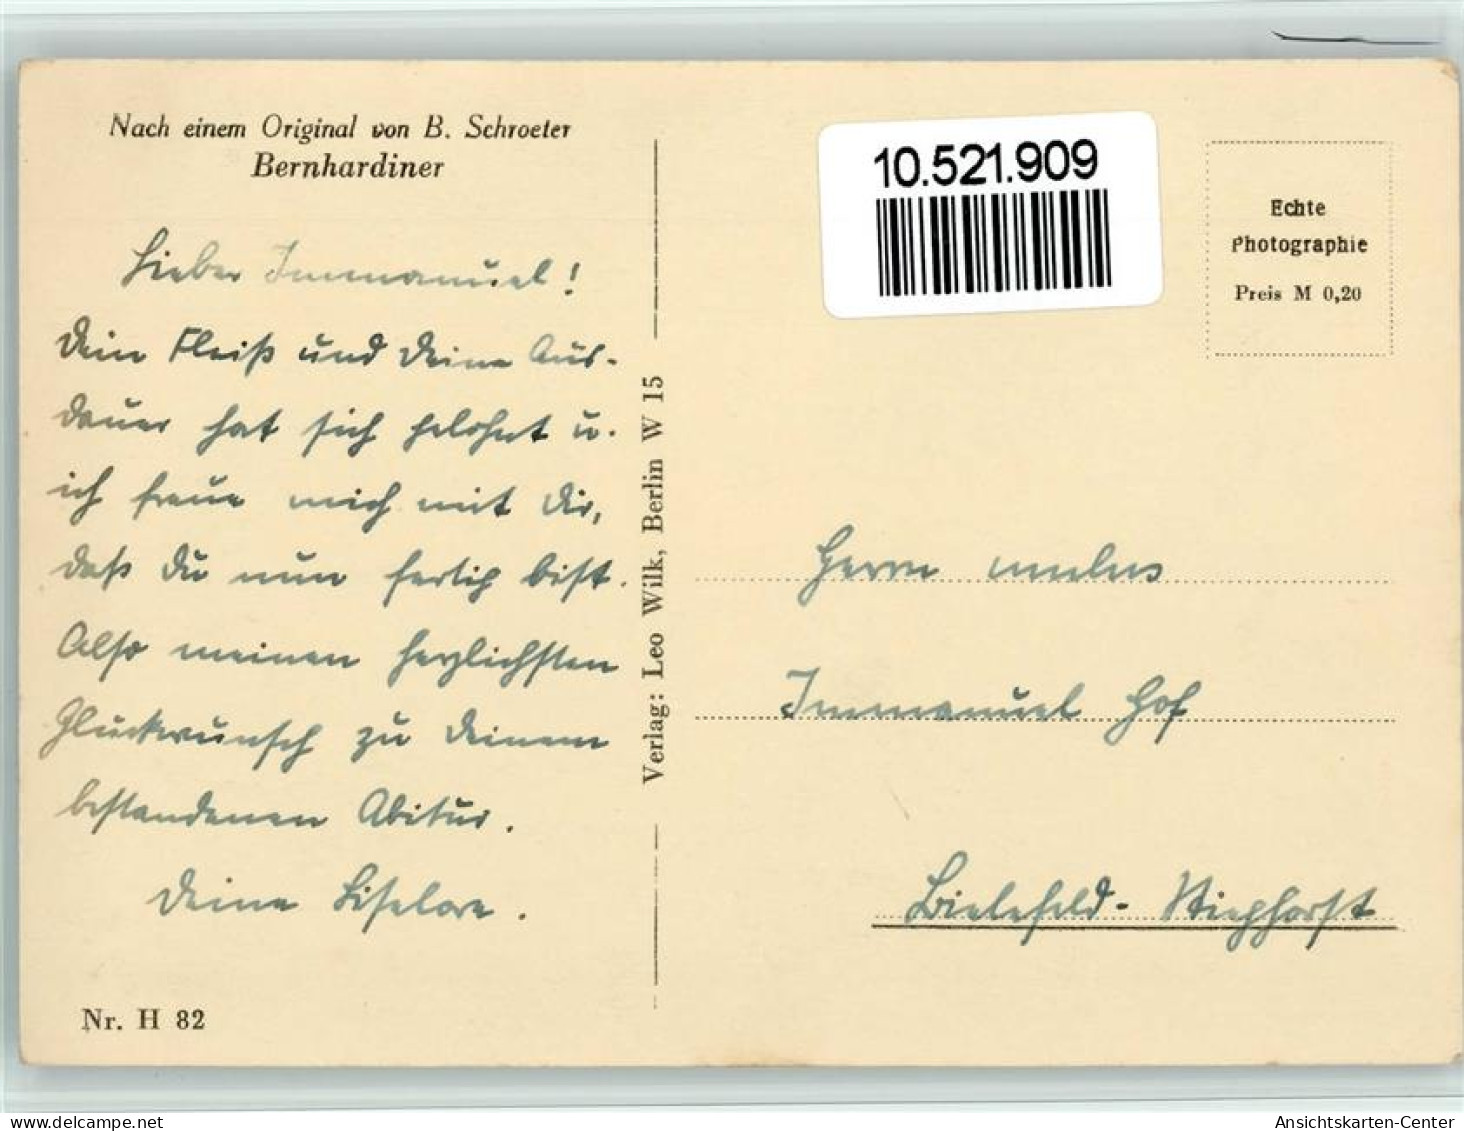 Nach einem Original von B. Schroeter
Bernhardiner
Lieber Immanuel!
Dein Fleiß und Deine Aus-
dauer hat sich gelohnt u.
ich freue mich mit Dir,
daß Du nun fertig bist.
Also meinen herzlichsten
Glückwunsch zu Deinem
bestandenen Abitur.
Deine Liselore.
Nr. H 82
Verlag: Leo Wilk, Berlin W 15
10.521.909
Echte
Photographie
Preis M 0,20
Herrn mulus
Immanuel Hof
Bielefeld-Stieghorst
oldthing.de
Ansichtskarten-Center